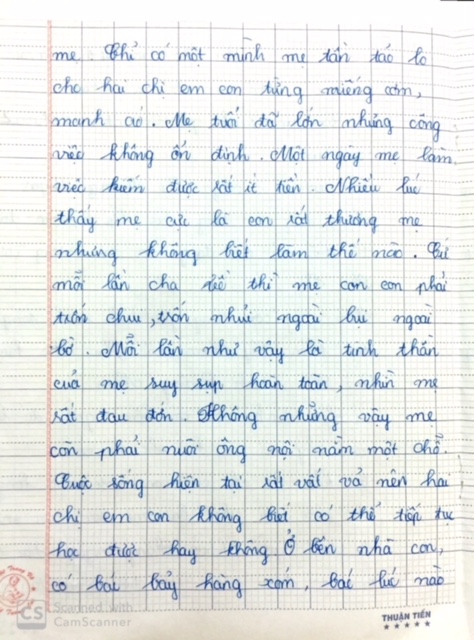 mẹ. Chỉ có một mình mẹ tần tảo lo
cho hai chị em con từng miếng cơm,
manh áo. Mẹ tuổi đã lớn nhưng công
việc không ổn định. Một ngày mẹ làm
việc kiếm được rất ít tiền. Nhiều lúc
thấy mẹ cực là con rất thương mẹ
nhưng không biết làm thế nào. Cứ
mỗi lần cha về thì mẹ con con phải
trốn chui, trốn nhủi ngoài bụi ngoài
bờ. Mỗi lần như vậy là tinh thần
của mẹ suy sụp hoàn toàn, nhìn mẹ
rất đau đớn. Không những vậy mẹ
còn phải nuôi ông nội nằm một chỗ.
Cuộc sống hiện tại rất vất vả nên hai
chị em con không biết có thể tiếp tục
học được hay không. Ở bên nhà con,
có bác bảy hàng xóm, bác lúc nào
THUẬN TIẾN
CS Scanned with
CamScanner